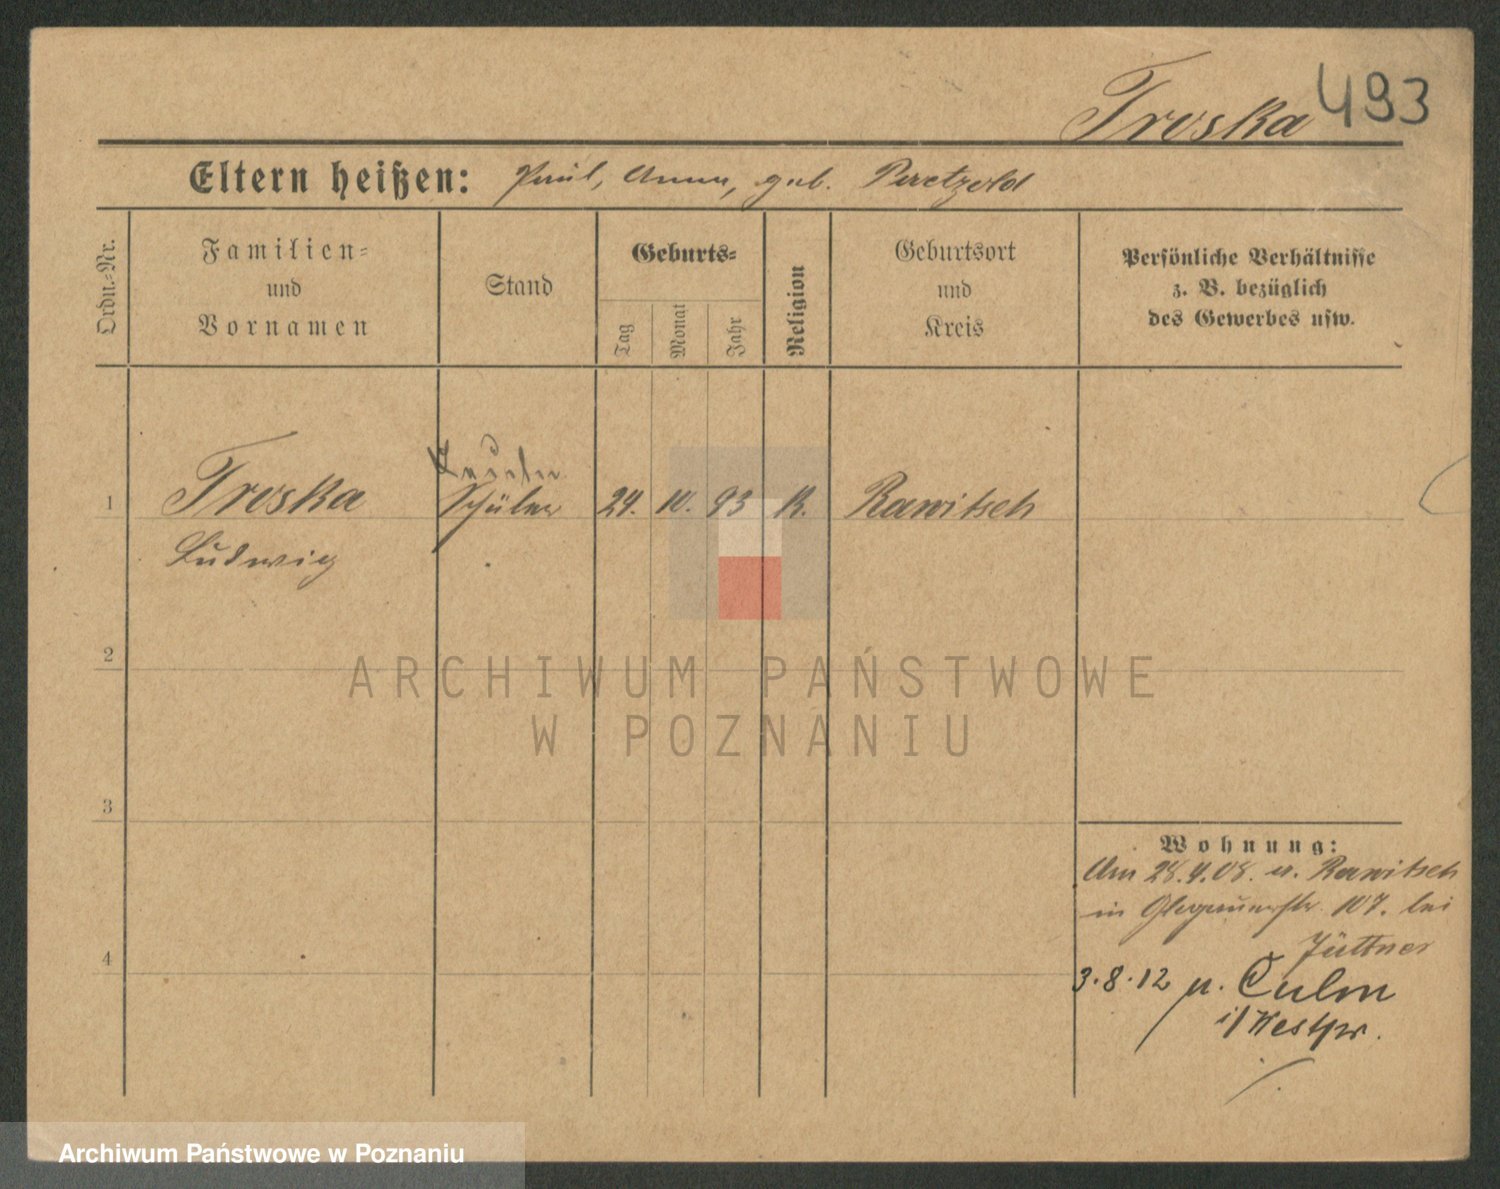 Troska 493
Eltern heißen: Paul, Anna, geb. Paetzold
Ordn.-Nr.
Familien-
und
Vornamen
Stand
Geburts-
Tag
Monat
Jahr
Religion
Geburtsort
und
Kreis
Persönliche Verhältnisse
z. B. bezüglich
des Gewerbes usw.
1 Troska Schüler 24. 10. 93 K. Rawitsch
Ludwig
2
ARCHIWUM PAŃSTWOWE
W POZNANIU
3
Wohnung:
Am 28.4.08. n. Rawitsch
in 107. bei
Jüttner
4
3.8.12 n. Culm
i/Westpr.
Archiwum Państwowe w Poznaniu